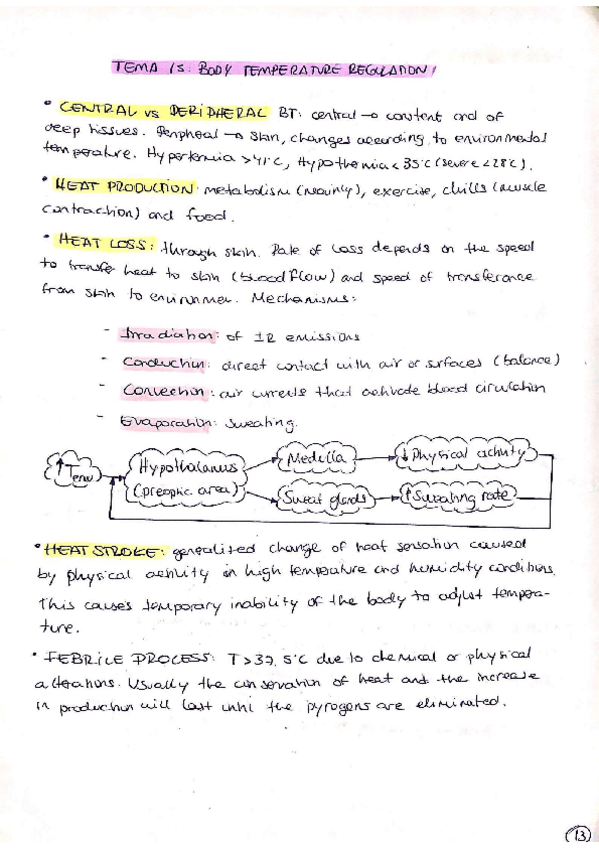 TEMA 15: BODY TEMPERATURE REGULATION
• CENTRAL vs PERIPHERAL BT: central → constant and of
deep tissues. Peripheral → skin, changes according to environmental
temperature. Hypertermia >41°C, Hypothermia < 35°C (severe < 28°C).
• HEAT PRODUCTION: metabolism (mainly), exercise, chills (muscle
contraction) and food.
• HEAT LOSS: through skin. Rate of loss depends on the speed
to transfer heat to skin (blood flow) and speed of transference
from skin to environmen. Mechanisms:
- Irradiation: of IR emissions
- Conduction: direct contact with air or surfaces (balance)
- Convection: air currents that activate blood circulation
- Evaporation: sweating.
↑Tenv
Hypothalamus
(preoptic area)
Medulla
↓ Physical activity
Sweat glands
↑ Sweating rate
• HEAT STROKE: generalised change of heat sensation caused
by physical activity in high temperature and humidity conditions.
This causes temporary inability of the body to adjust tempera-
ture.
• FEBRILE PROCESS: T > 37,5°C due to chemical or physical
alterations. Usually the conservation of heat and the increase
in production will last until the pyrogens are eliminated.
13